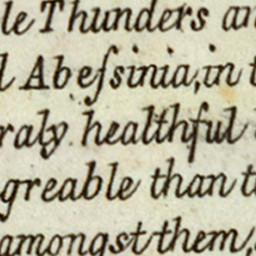 le Thunders an
l Abeſsinia, in t
raly healthful
greable than t
amongst them,